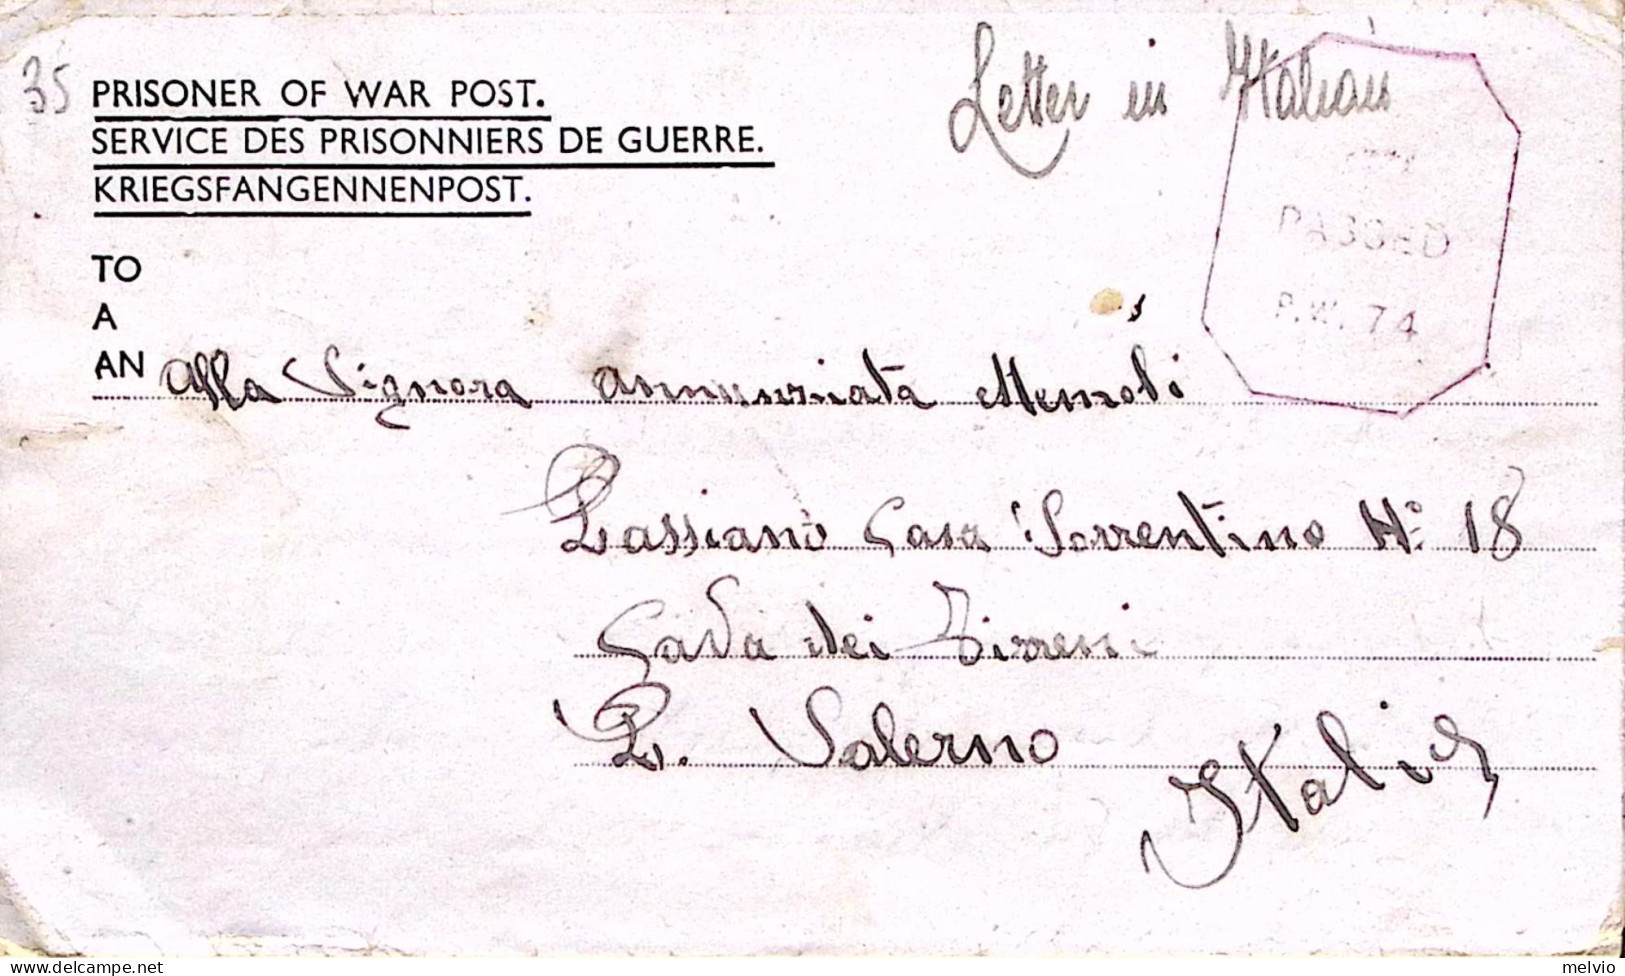 35
Letter in Italian
PRISONER OF WAR POST.
SERVICE DES PRISONNIERS DE GUERRE.
KRIEGSFANGENNENPOST.
PASSED
P.W. 74
TO
A
AN Alla Signora Annunziata Memoli
Passiano Casa Sorrentino N: 18
Cava dei Tirreni
P. Salerno
Italia
delcampe.net
melvio